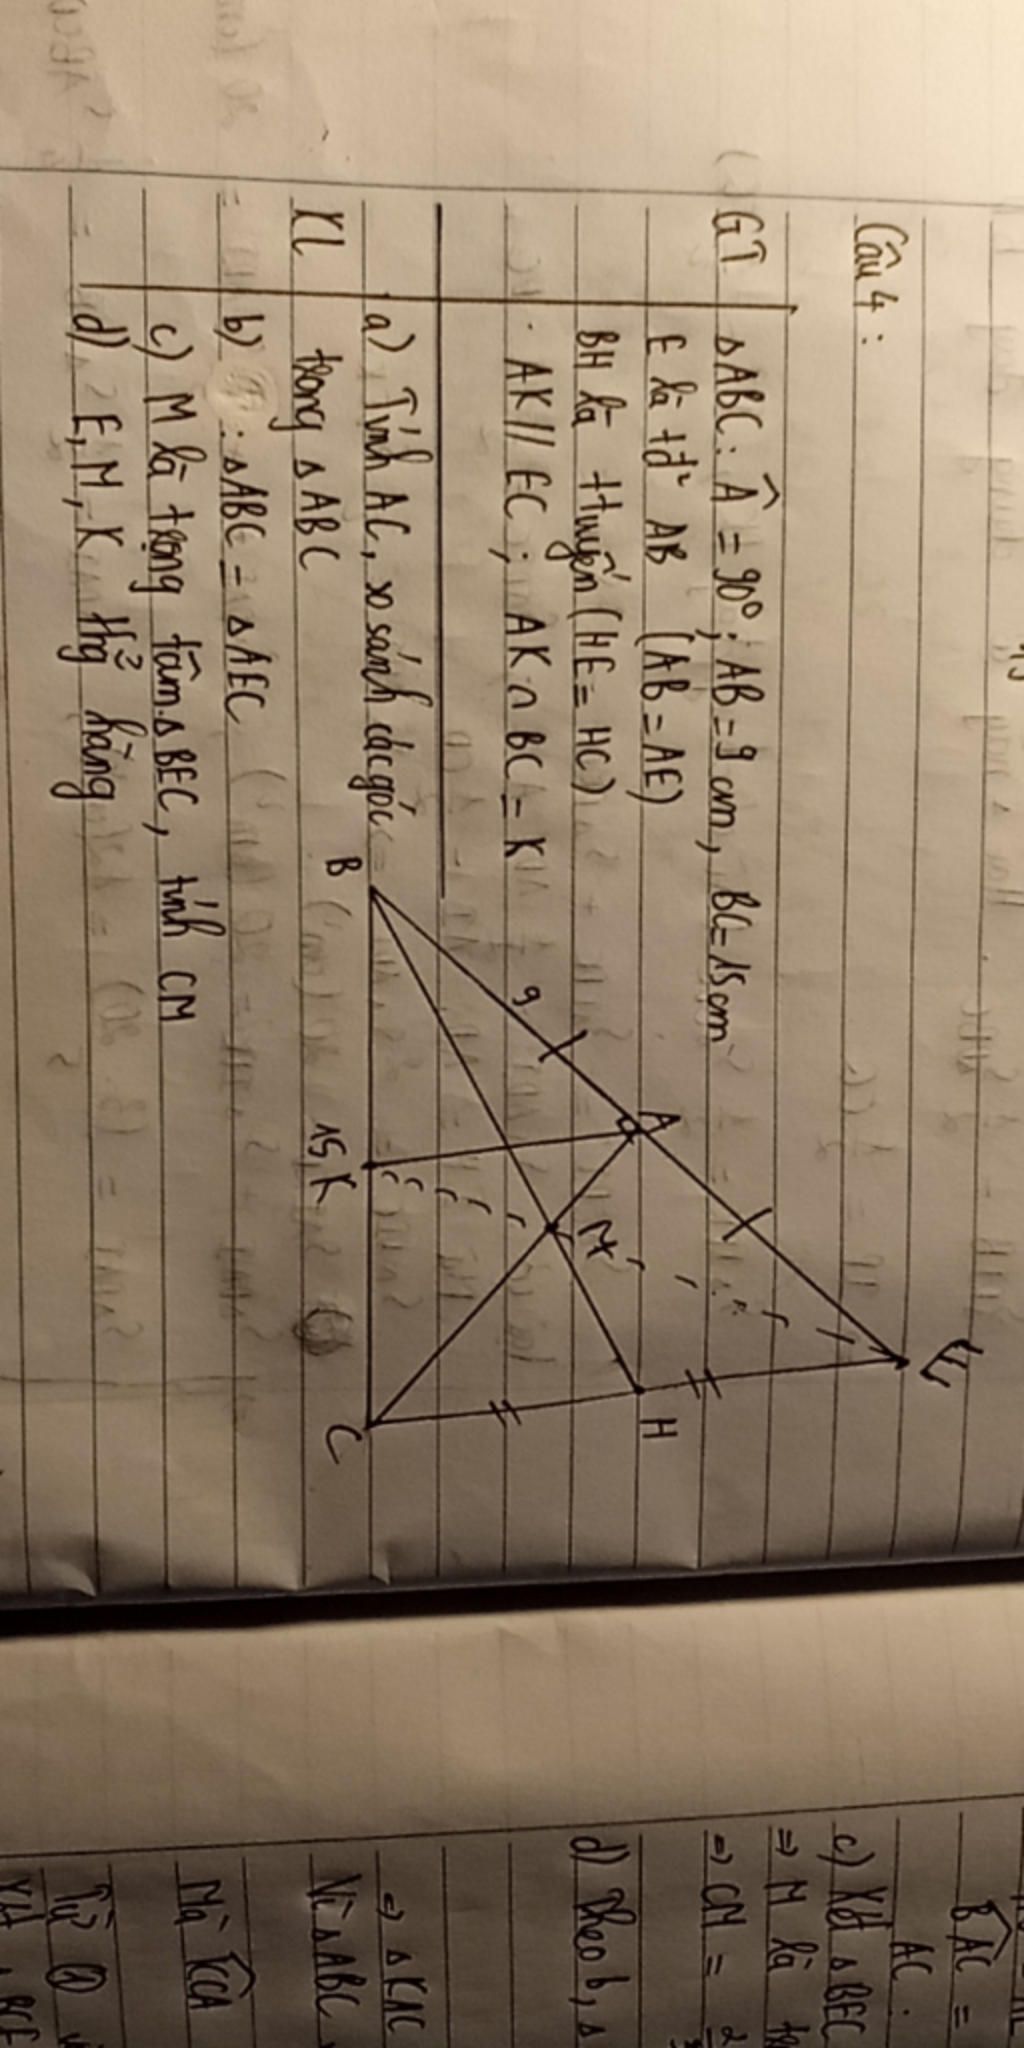 Câu 4:
GT ΔABC: Â = 90°; AB = 9 cm, BC = 15 cm
E là tđ² AB (AB = AE)
BH là ttuyến (HE = HC)
AK // EC; AK ∩ BC = K
KL a) Tính AC, so sánh các góc
trong ΔABC
b) : ΔABC = ΔAEC
c) M là trọng tâm ΔBEC, tính CM
d) E, M, K thg² hàng
B
9
A
E
15
K
M
H
C
BAC =
AC:
c) Xét ΔBEC
=> M là
=> CM = 2
d) Theo b, Δ
=> ΔKAC
Vì ΔABC
Mà KCA
Từ ①